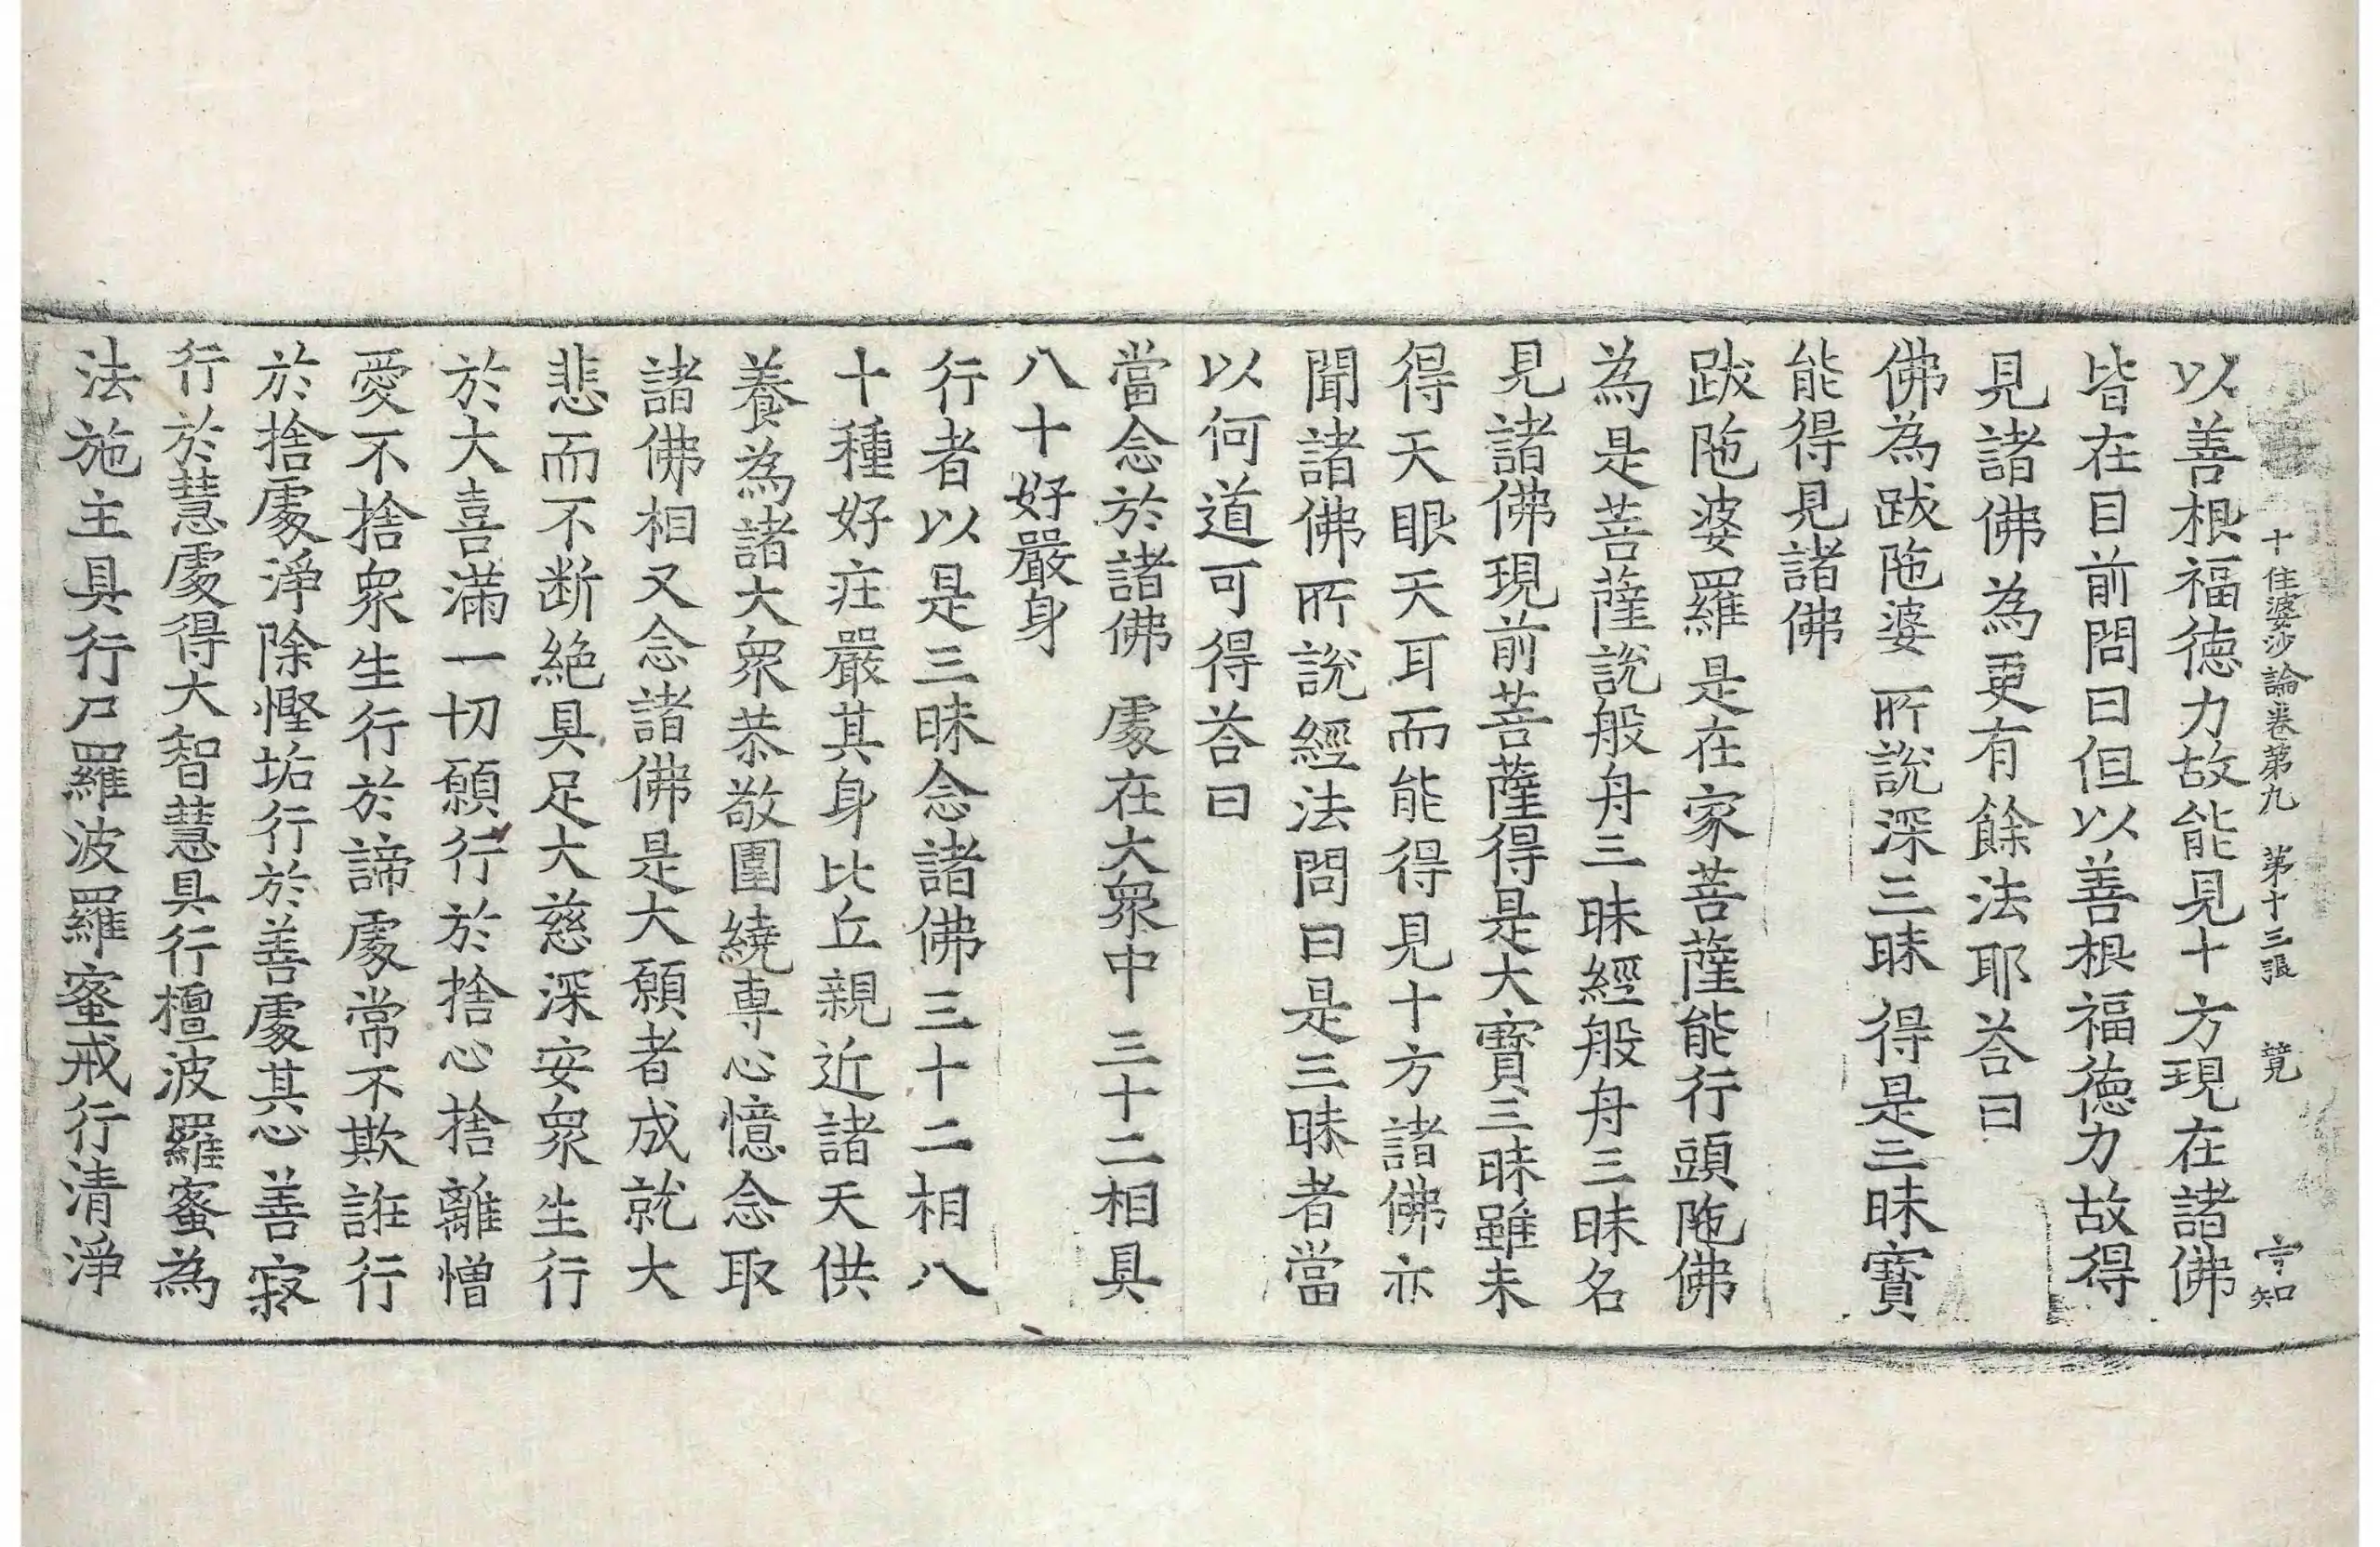 十住婆沙論卷第九 第十三張 竟 知
以善根福德力故能見十方現在諸佛
皆在目前問曰但以善根福德力故得
見諸佛為更有餘法耶荅曰
佛為跋陁婆 所說深三昧 得是三昧寶
能得見諸佛
跋陁婆羅是在家菩薩能行頭陁佛
為是菩薩說般舟三昧經般舟三昧名
見諸佛現前菩薩得是大寶三昧雖未
得天眼天耳而能得見十方諸佛亦
聞諸佛所說經法問曰是三昧者當
以何道可得荅曰
當念於諸佛 處在大衆中 三十二相具
八十好嚴身
行者以是三昧念諸佛三十二相八
十種好庄嚴其身比丘親近諸天供
養為諸大衆恭敬圍繞專心憶念取
諸佛相又念諸佛是大願者成就大
悲而不断絶具足大慈深安衆生行
於大喜滿一切願行於捨心捨離憎
愛不捨衆生行於諦處常不欺誑行
於捨處淨除慳垢行於善處其心善寂
行於慧處得大智慧具行檀波羅蜜為
法施主具行尸羅波羅蜜戒行清淨